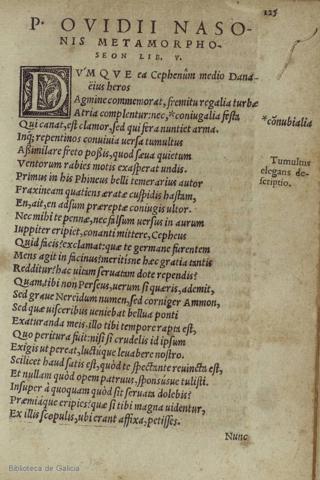 125
P. OVIDII NASO-
NIS METAMORPHO-
SEON LIB. V.
DVMQVE ea Cephenûm medio Dana-
ëius heros
Agmine commemorat, fremitu regalia turbæ
Atria complentur: nec, *coniugalia festa
*cōnubialia
Qui canat, est clamor, sed qui fera nuntiet arma.
Inq; repentinos conuiuia versa tumultus
Tumultus
elegans de-
scriptio.
Assimilare freto possis, quod sæua quietum
Ventorum rabies motis exasperat undis.
Primus in his Phineus belli temerarius autor
Fraxineam quatiens æratæ cuspidis hastam,
En, ait, en adsum præreptæ coniugis ultor.
Nec mihi te pennæ, nec falsum versus in aurum
Iuppiter eripiet, conanti mittere, Cepheus
Quid facis? exclamat: quæ te germane furentem
Mens agit in facinus? meritisne hæc gratia tantis
Redditur? hac uitam seruatam dote rependis?
Quam, tibi non Perseus, uerum si quæris, ademit,
Sed graue Nereidum numen, sed corniger Ammon,
Sed quæ uisceribus veniebat bellua ponti
Exaturanda meis. illo tibi tempore rapta est,
Quo peritura fuit: nisi si crudelis id ipsum
Exigis ut pereat, luctuque leuabere nostro.
Scilicet haud satis est, quòd te spectante reuincta est,
Et nullam quòd opem patruus, sponsusue tulisti.
Insuper à quoquam quòd sit seruata dolebis?
Præmiaque eripies? quæ si tibi magna uidentur,
Ex illis scopulis, ubi erant affixa, petisses.
Nunc
Biblioteca de Galicia